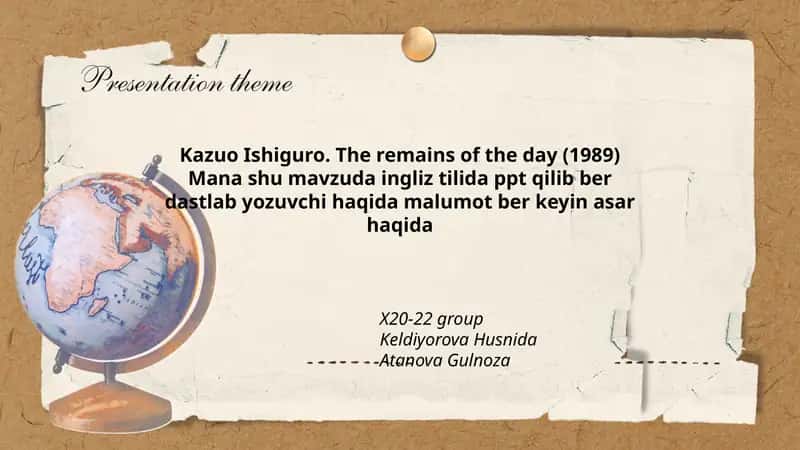 Presentation theme
Kazuo Ishiguro. The remains of the day (1989)
Mana shu mavzuda ingliz tilida ppt qilib ber
dastlab yozuvchi haqida malumot ber keyin asar
haqida
X20-22 group
Keldiyorova Husnida
Atanova Gulnoza